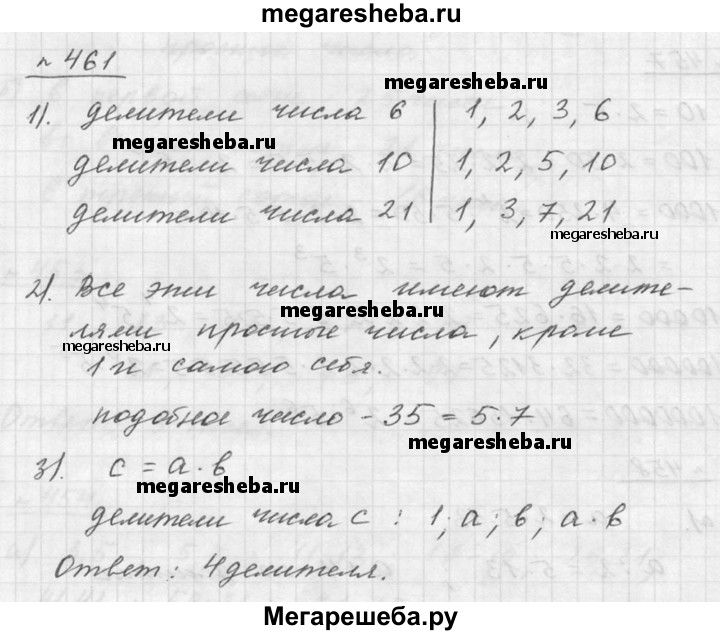 megaresheba.ru
№ 461
megaresheba.ru
1). делители числа 6 | 1, 2, 3, 6
megaresheba.ru
делители числа 10 | 1, 2, 5, 10
делители числа 21 | 1, 3, 7, 21
megaresheba.ru
2). Все эти числа имеют делите-
megaresheba.ru
лями простые числа, кроме
megaresheba.ru
1 и самого себя.
подобное число - 35 = 5·7
megaresheba.ru
3). c = a·b
megaresheba.ru
делители числа c : 1; a; b; a·b
Ответ: 4 делителя.
Мегарешеба.ру